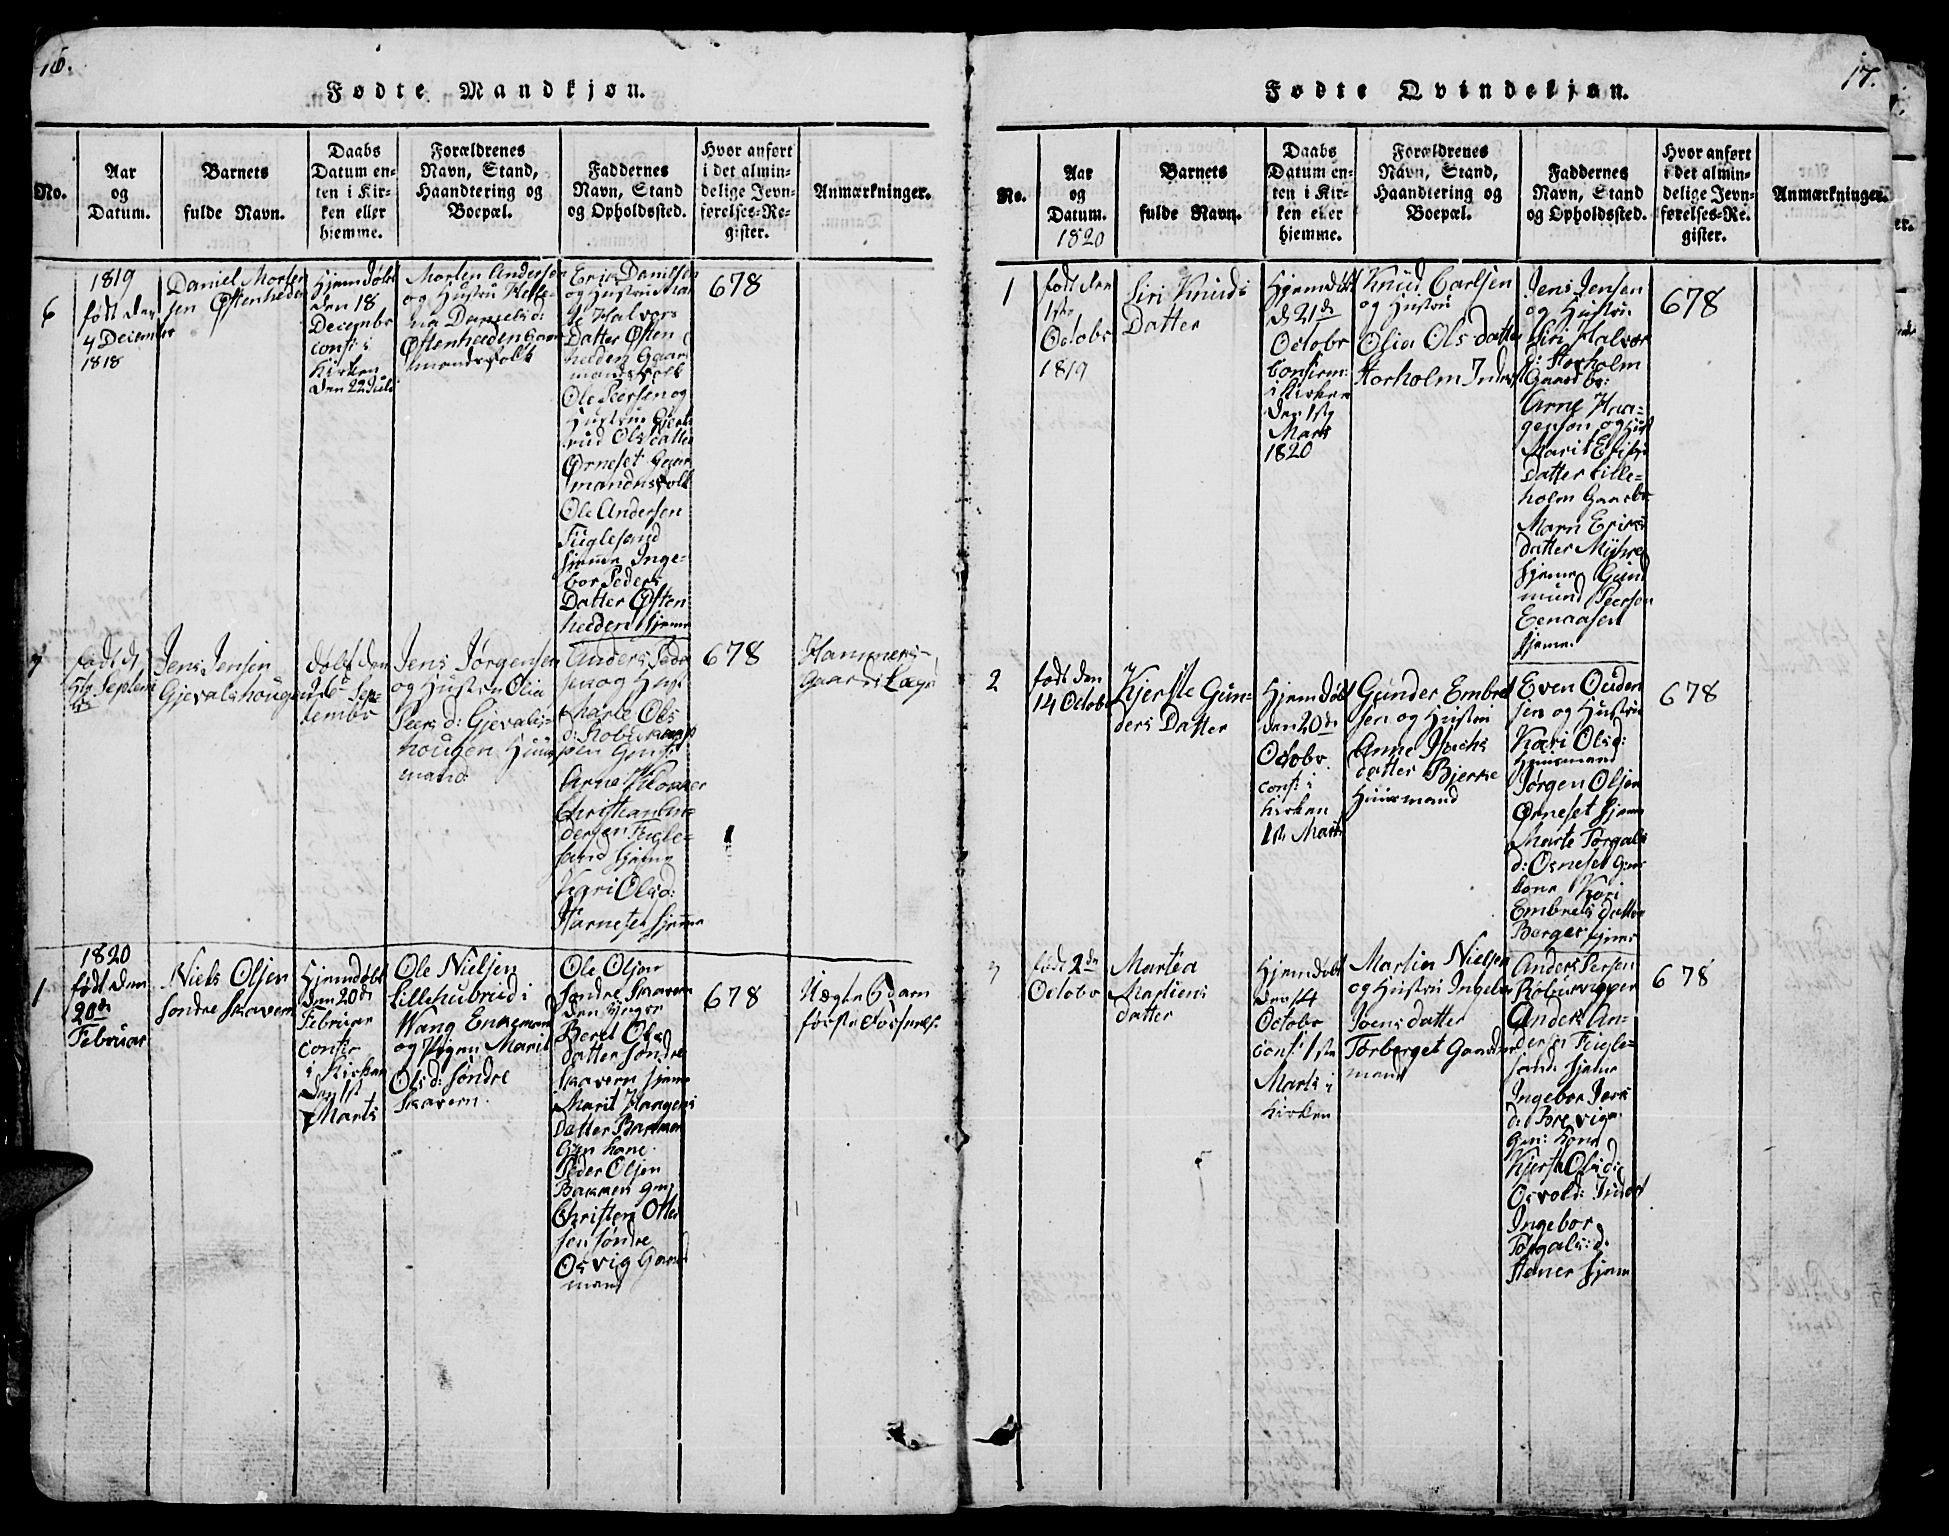 16.
Fødte Mandkjøn.
No.
Aar
og
Datum.
Barnets
fulde Navn.
Daabs
Datum en-
ten i Kir-
ken eller
hiemme.
Forældrenes
Navn, Stand,
Haandtering og
Boepæl.
Faddernes
Navn, Stand
og Opholdssted.
Hvor anført
i det almin-
delige Jevn-
førelses-Re-
gister.
Anmærkninger.
6
1819
født den
4 Deicember
1818
Daniel Morten
sen Østenheden
Hjemdøbt
den 18
Decembr
conf: i
Kirken
den 22 Juli
Morten Andersen
og Hustru
na Daniels d:
Østenheeden Gaar
mandsfolk
Erik Danilsen
og Hustru
Halvors
Datter Østen
heden Gaar
mandsfolk
Ole Peersen og
Hustru Gjert
rud Olsdatter
Ørneset Gaar
mandsfolk
Ole Andersen
Fuglesand
hjeme Inge-
bor Peders
Datter Østen
heeden hjeme
678
7
født d.
Septem
Jens Jensen
Gjevalshougen
døbt den
Sep-
tembr
Jens Jørgensen
og Hustru Olia
Peers d: Gjevals-
hougen Huus
mand
Anders Peder
sen og Hust
Marte Ols
d:
Arne
Christian An-
dersen Fugle-
sand hjeme
Kari Olsd:
Harneset hjeme
678
Hammers-
Gaards
1
1820
født den
20de
Februar
Niels Olsen
søndre Skavern
Hjemdøbt
den 20de
Februar
confir
i Kirken
den 1ste
Marts
Ole Nielsen
Lillehubrud i
Wang Enkemand
og Pigen Marit
Olsd: søndre
Skavern.
Ole Olsen
søndre Skavern
den Yngre
Beret Ols
datter søndre
Skavern hjeme
Marit Haagens
datter Bakken
Gjen Kone
Peder Olsen
Bakken
Christen Otter
sen søndre
Osvig Gaard
mand
678
Uægte Barn
første
17.
Fødte Qvindekjøn.
No.
Aar
og
Datum.
1820
Barnets
fulde Navn.
Daabs
Datum en-
ten i Kir-
ken eller
hiemme.
Forældrenes
Navn, Stand,
Haandtering og
Boepæl.
Faddernes
Navn, Stand
og Opholdssted.
Hvor anført
i det almin-
delige Jevn-
førelses-Re-
gister.
Anmærkninger.
1
født den
1ste
Octobr
1819
Siri Knuds
Datter
Hjemdøbt
d 21de
Octobr
Confirm:
i Kirken
den 1ste
Marts
1820
Knud Carlsen
og Hustru
Olia Olsdatter
Storholm
Jens Jensen
og Hustru
Siri Halvor
d: Storholm
Gaardbr:
Arne Haa-
gensen og Hust
Marit Eriks
Datter Lille-
holm Gaardbr
Marn Eriks
datter Myhre
hjeme Gud
mund Peersen
Eenaasen
hjeme.
678
2
født den
14 Octobr
Kjerste Gun-
ders Datter
Hjemdøbt
den 20de
Octobr
conf: i
Kirken
1ste Marts
Gunder Embret
sen og Hustru
Anne
datter Bjerke
Huusmand
Even Ouden
sen og Hustru
Kari Olsd:
Huusmand
Jørgen Olsen
Ørneset hjeme
Marte Torgals
d: Osneset
kone Kari
Embrets datter
Berger hjeme
678
3
født 2den
Octobr
Martea
Martiens
datter
Hjemdøbt
den 14
Octobr
conf: 1ste
Marts i
Kirken
Martin Nielsen
og Hustru Ingebor
Joensdatter
Torberget Gaards
mand
Anders Persen
Anders An-
dersen Fugle-
sand hjeme
Ingebor Jens
d: Brevig
Kone
Kjerste Olsd:
Osvold:
Ingebor
Torgals: d:
hjem
678